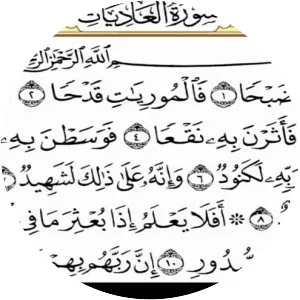 سورة العاديات
ـم الله الرحمن الر
ضَبْحًا ۝١ فَالْمُورِيَاتِ قَدْحًا ۝٢
فَأَثَرْنَ بِهِ نَقْعًا ۝٤ فَوَسَطْنَ بِهِ
ـبِّهِ لَكَنُودٌ ۝٦ وَإِنَّهُ عَلَىٰ ذَٰلِكَ لَشَهِيدٌ
۝٨ ۞ أَفَلَا يَعْلَمُ إِذَا بُعْثِرَ مَا فِي
ـدُورِ ۝١٠ إِنَّ رَبَّهُم بِهِـ